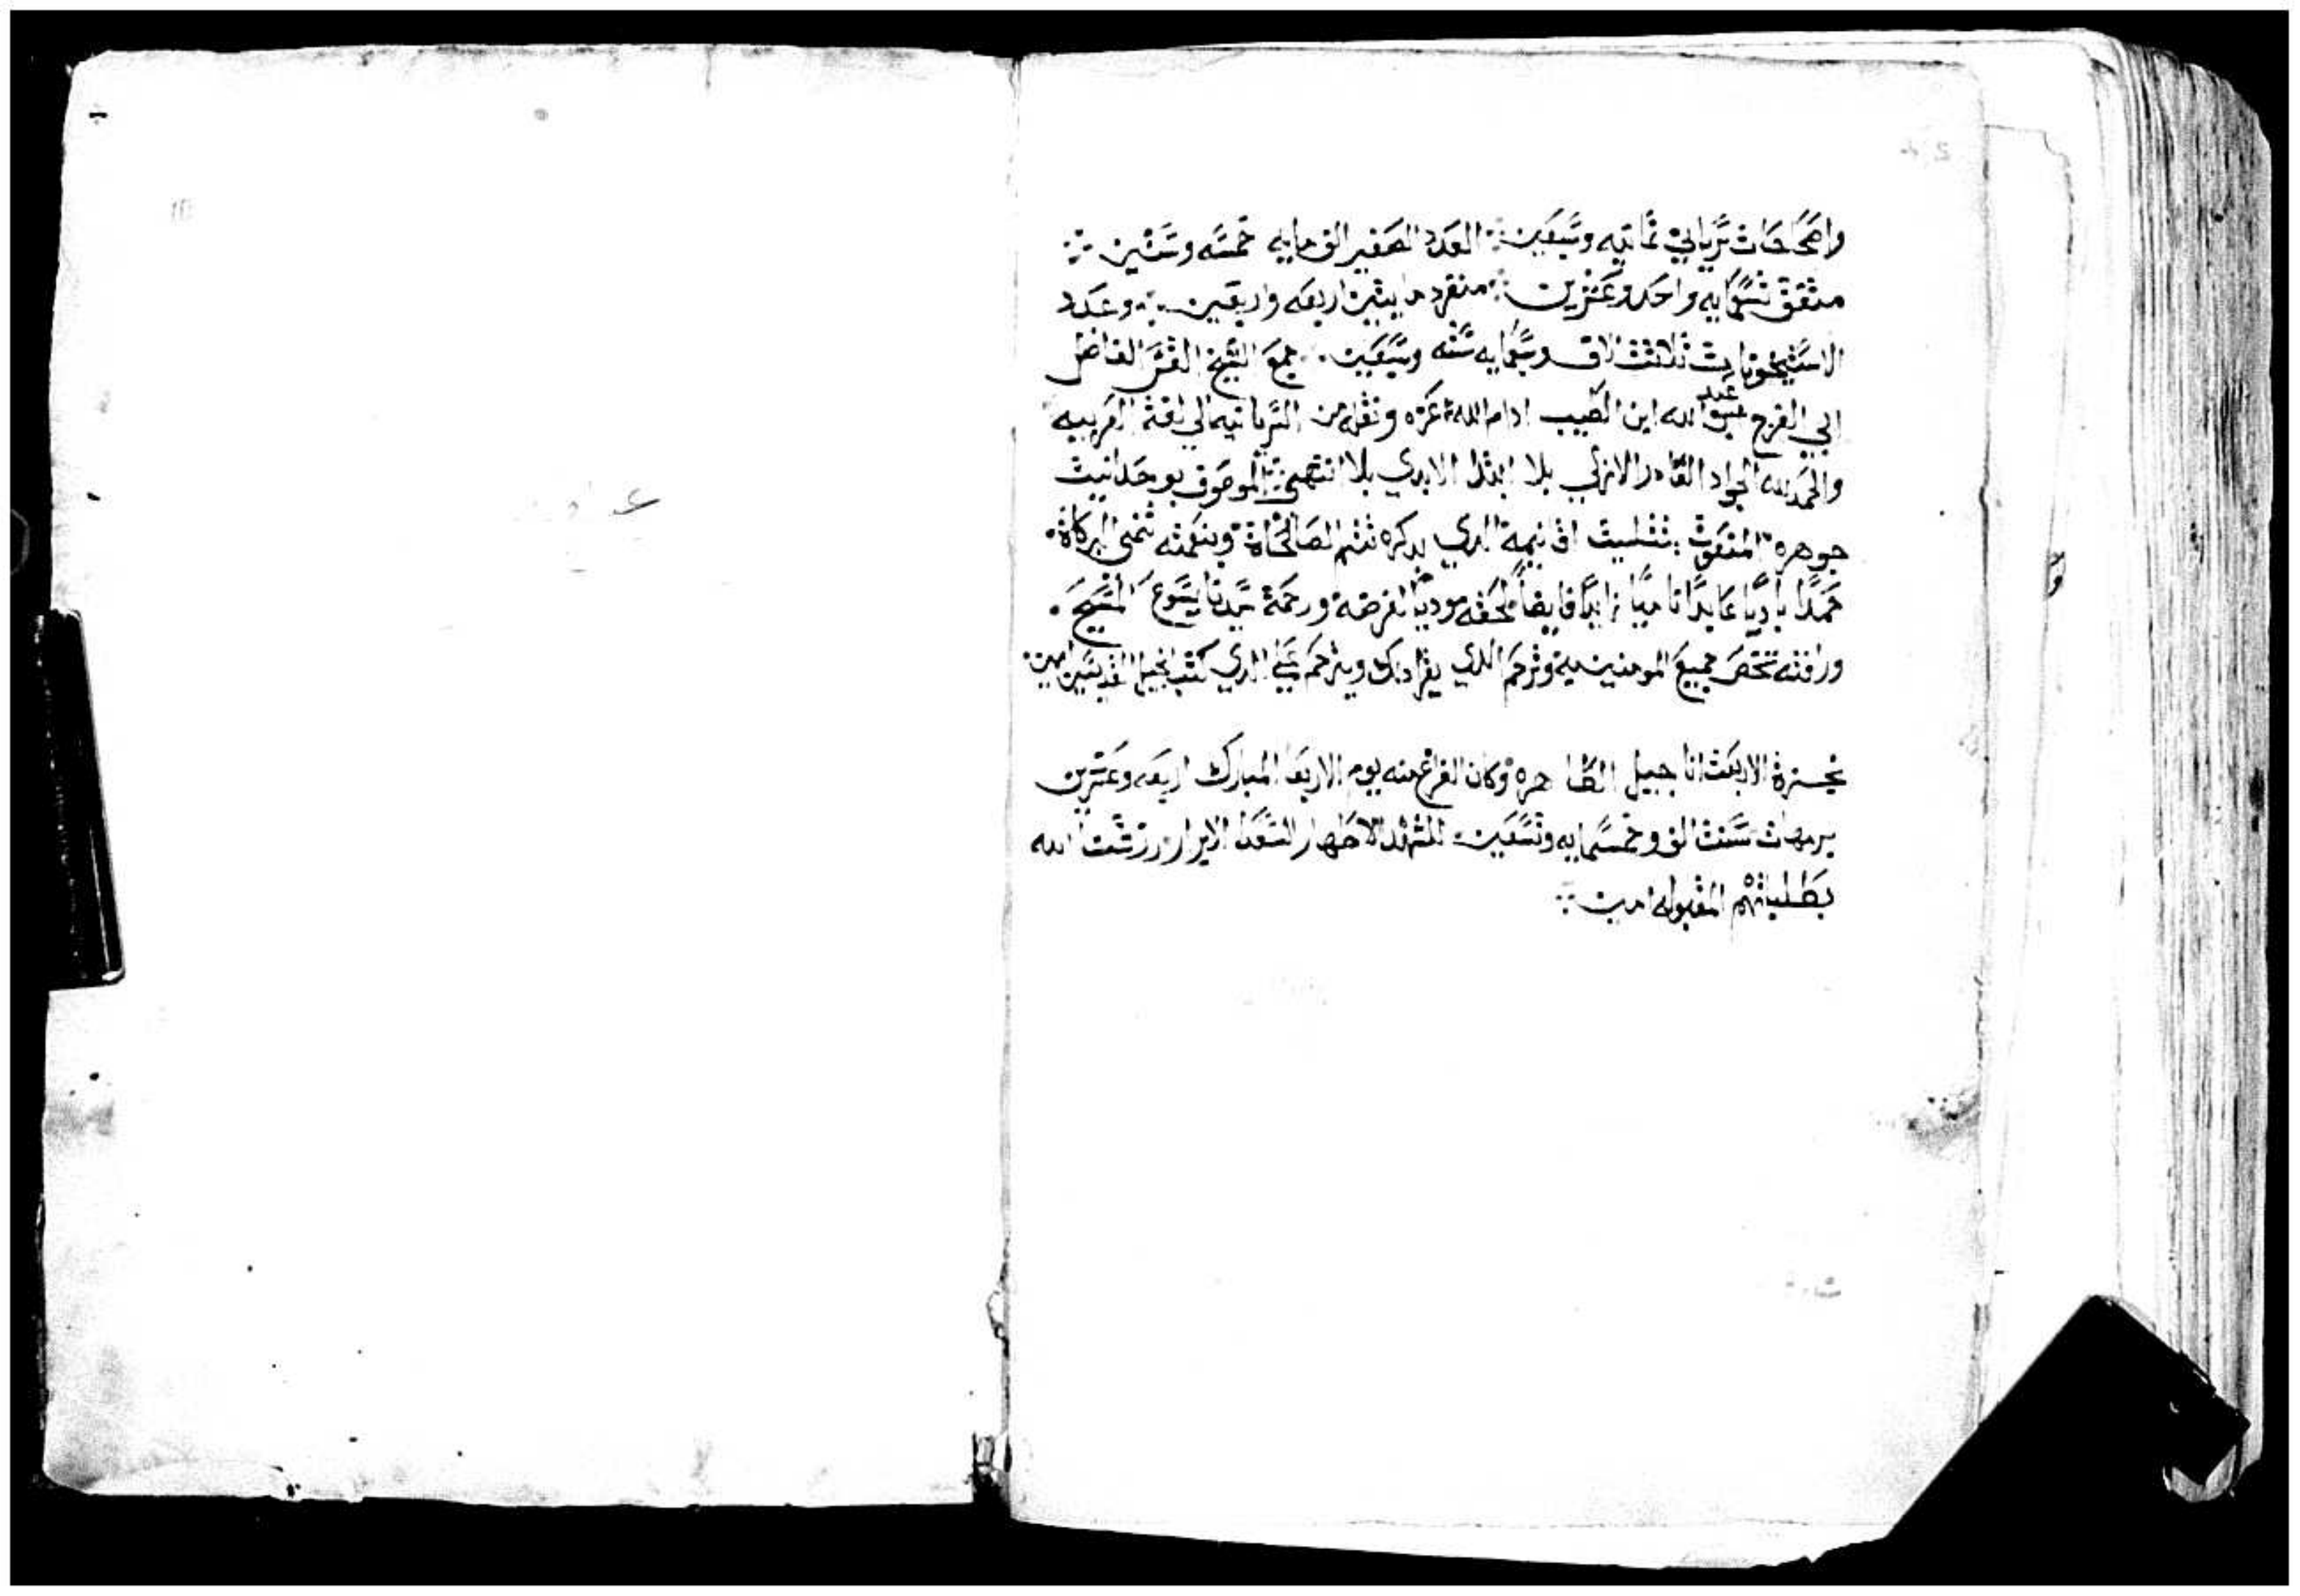 واصحاحات سرياني ثمانيه وسبعين ∴ العدد الصغير الف مايه خمسه وستين ∴
متفق تسعمايه واحد وعشرين ∴ منفرد مايتين اربعه واربعين ∴ وعدد
الاستيخونات ثلاثت الاف وسبعمايه سته وسبعين ∴ جمع الشيخ القس الفاضل
ابي الفرج عبد الله ابن الطيب ادام الله عزه ونقله من السريانيه الي لغة العربيه
والحمد لله الجواد القادر الازلي بلا ابتدا الابدي بلا انتهى ∴ الموصوف بوحدانيت
جوهره المنعوت بتثليت اقانيمه الدي بدكره تتم الصالحاة وبنعمته تنمى البركاة ∙
حمدًا باديًا عايدًا ناميًا زايدًا فايضاً لحقه موديًا لفرضه ورحمة سيدنا يسوع المسيح ∙
ورافته تخص جميع المومنين به وترحم الدي يقرا دلك ويترحم علي الدي كتب انجيل القديسين امين ∙
نجزة الاربعت اناجييل الطاهره وكان الفراغ منه يوم الاربعا المبارك اربعه وعشرين
برمهات سنت الف وخمسمايه وتسعين للشهدا الاطهار السعدا الابرار رزقنا الله
بطلباتهم المقبوله امين ∴